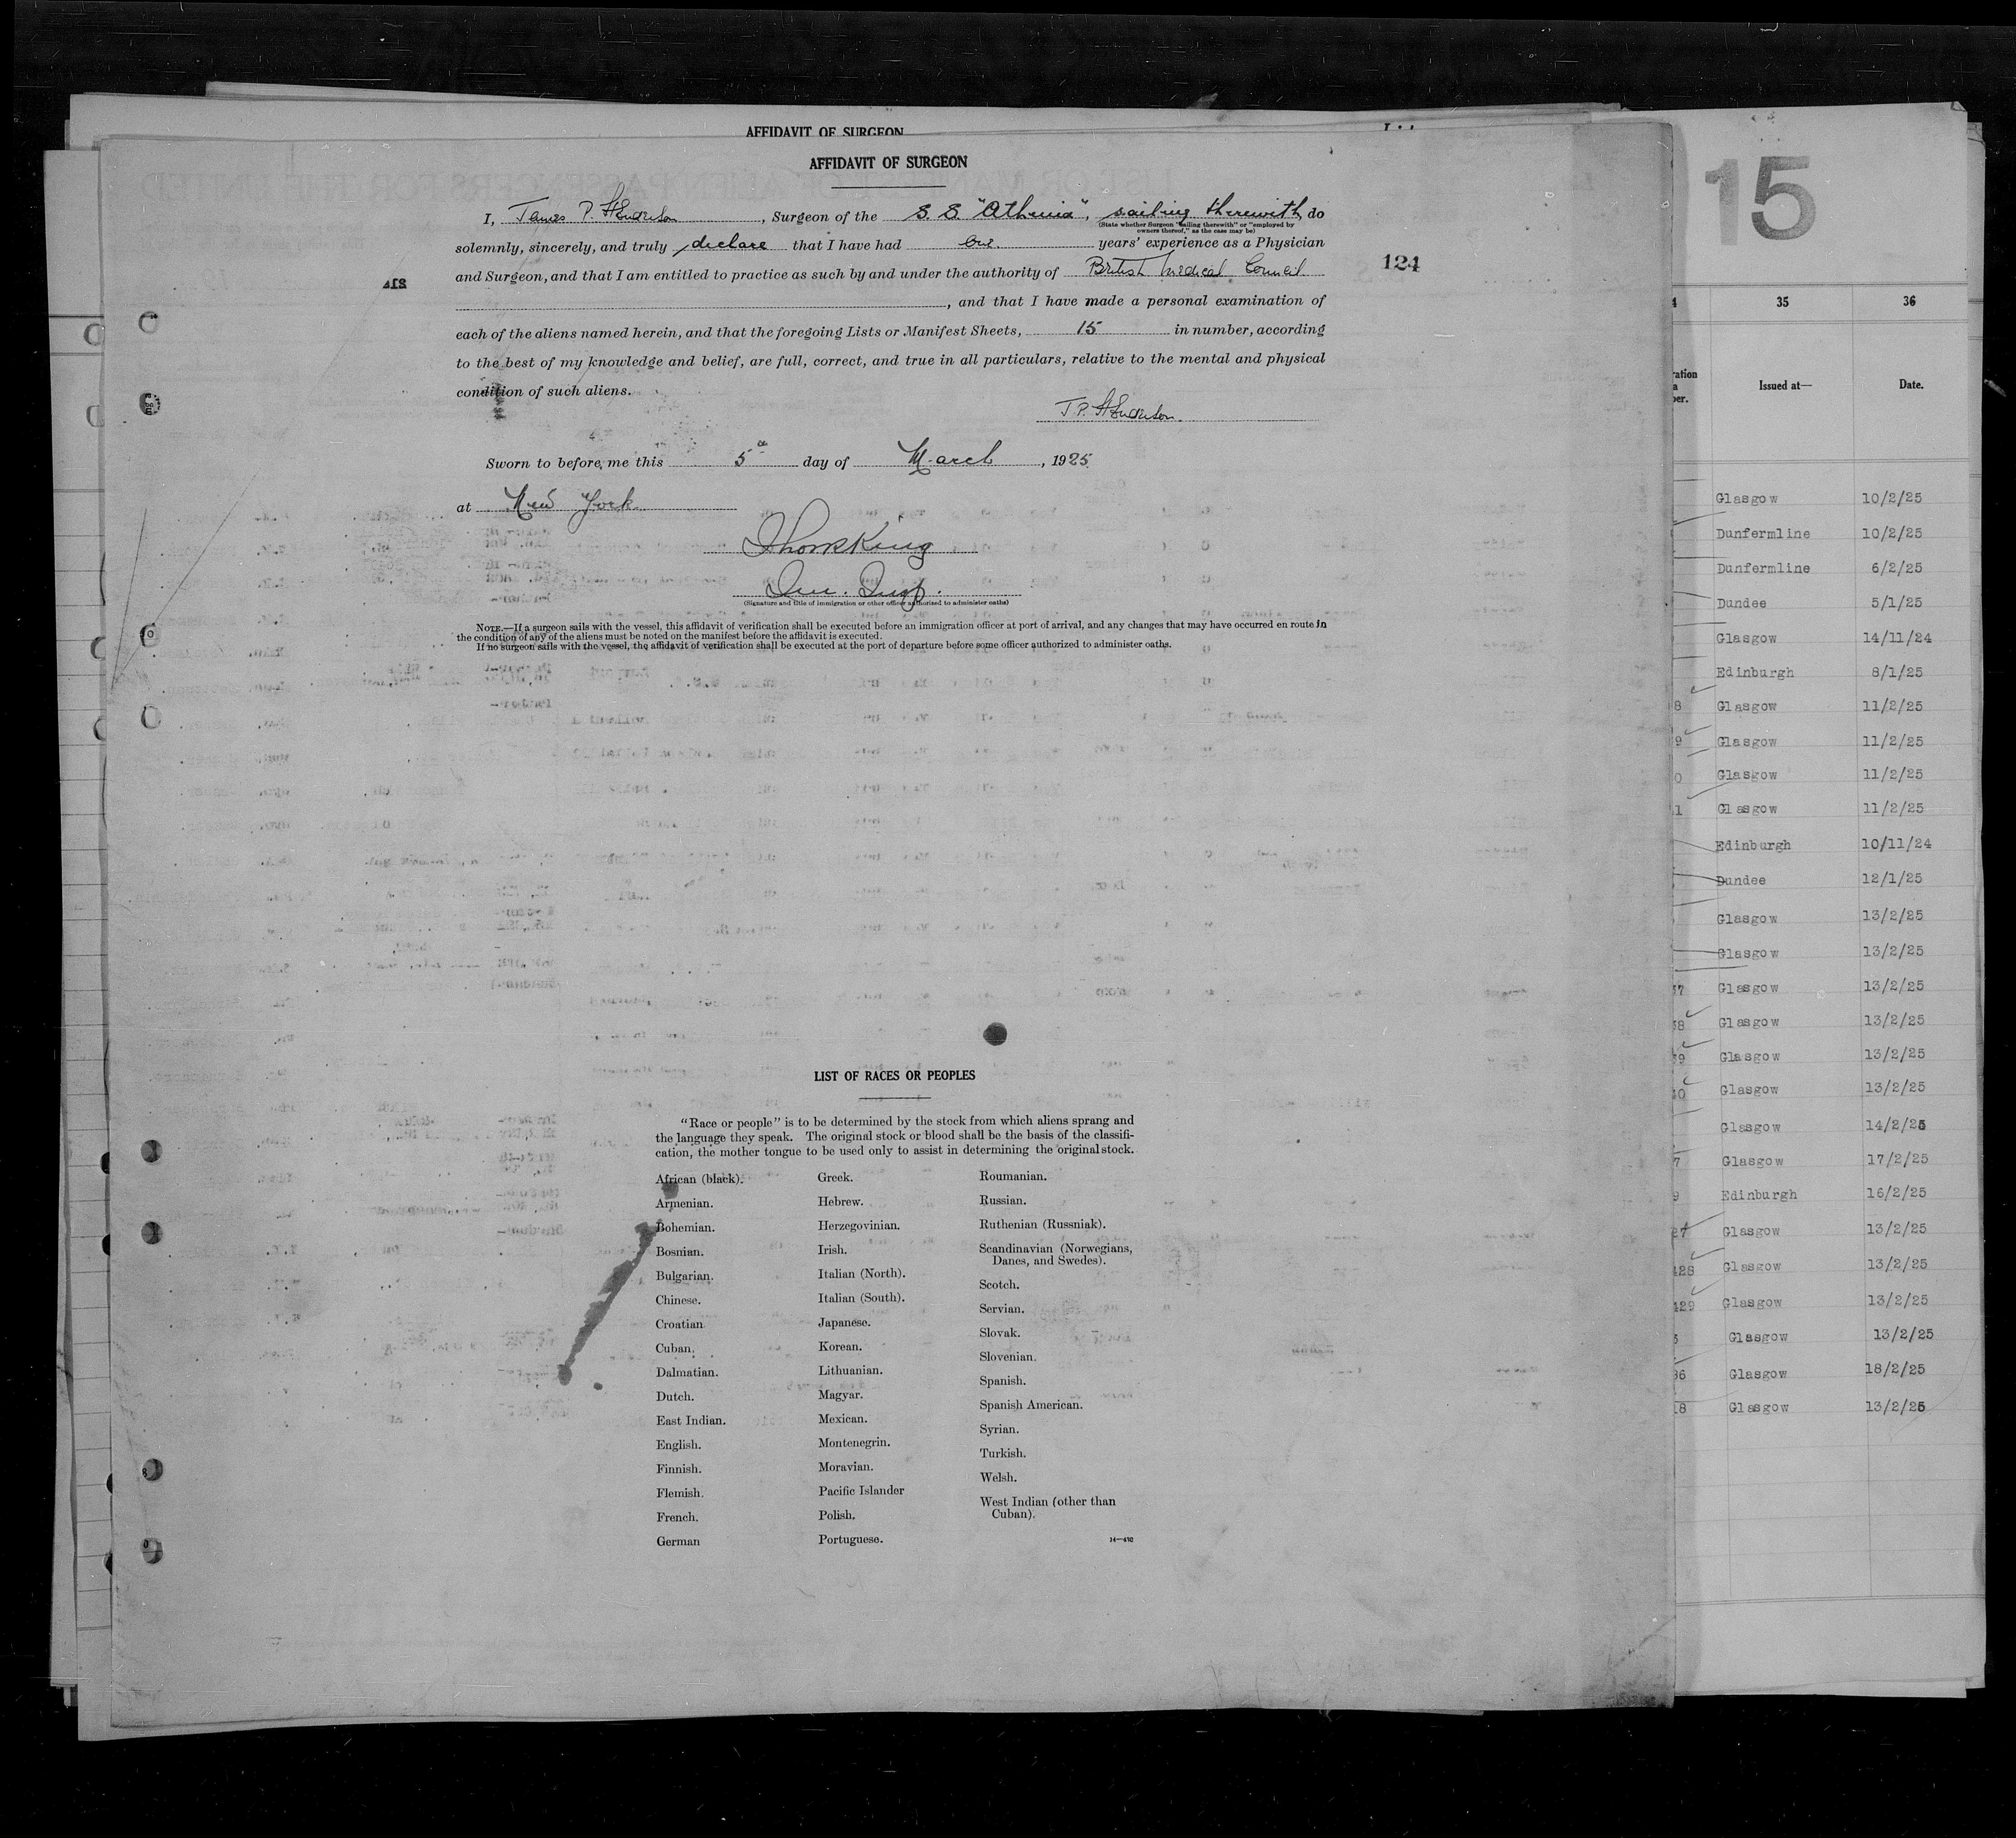 AFFIDAVIT OF SURGEON
AFFIDAVIT OF SURGEON
I, James P. Henderson, Surgeon of the S. S. "Athenia", sailing therewith, do
(State whether Surgeon "sailing therewith" or "employed by
owners thereof," as the case may be)
solemnly, sincerely, and truly declare that I have had one years' experience as a Physician
and Surgeon, and that I am entitled to practice as such by and under the authority of British Medical Council
, and that I have made a personal examination of
each of the aliens named herein, and that the foregoing Lists or Manifest Sheets, 15 in number, according
to the best of my knowledge and belief, are full, correct, and true in all particulars, relative to the mental and physical
condition of such aliens.
J P. Henderson.
Sworn to before me this 5th day of March, 1925
at New York
King
Imm. Insp.
(Signature and title of immigration or other officer authorized to administer oaths)
NOTE.—If a surgeon sails with the vessel, this affidavit of verification shall be executed before an immigration officer at port of arrival, and any changes that may have occurred en route in
the condition of any of the aliens must be noted on the manifest before the affidavit is executed.
If no surgeon sails with the vessel, the affidavit of verification shall be executed at the port of departure before some officer authorized to administer oaths.
124
LIST OF RACES OR PEOPLES
"Race or people" is to be determined by the stock from which aliens sprang and
the language they speak. The original stock or blood shall be the basis of the classifi-
cation, the mother tongue to be used only to assist in determining the original stock.
African (black).
Armenian.
Bohemian.
Bosnian.
Bulgarian.
Chinese.
Croatian
Cuban.
Dalmatian.
Dutch.
East Indian.
English.
Finnish.
Flemish.
French.
German
Greek.
Hebrew.
Herzegovinian.
Irish.
Italian (North).
Italian (South).
Japanese.
Korean.
Lithuanian.
Magyar.
Mexican.
Montenegrin.
Moravian.
Pacific Islander
Polish.
Portuguese.
Roumanian.
Russian.
Ruthenian (Russniak).
Scandinavian (Norwegians,
Danes, and Swedes).
Scotch.
Servian.
Slovak.
Slovenian.
Spanish.
Spanish American.
Syrian.
Turkish.
Welsh.
West Indian (other than
Cuban).
15
35 36
Issued at— Date.
Glasgow 10/2/25
Dunfermline 10/2/25
Dunfermline 6/2/25
Dundee 5/1/25
Glasgow 14/11/24
Edinburgh 8/1/25
8 Glasgow 11/2/25
9 Glasgow 11/2/25
0 Glasgow 11/2/25
1 Glasgow 11/2/25
Edinburgh 10/11/24
Dundee 12/1/25
Glasgow 13/2/25
Glasgow 13/2/25
37 Glasgow 13/2/25
38 Glasgow 13/2/25
39 Glasgow 13/2/25
40 Glasgow 13/2/25
Glasgow 14/2/25
7 Glasgow 17/2/25
9 Edinburgh 16/2/25
27 Glasgow 13/2/25
428 Glasgow 13/2/25
429 Glasgow 13/2/25
Glasgow 13/2/25
36 Glasgow 18/2/25
18 Glasgow 13/2/25